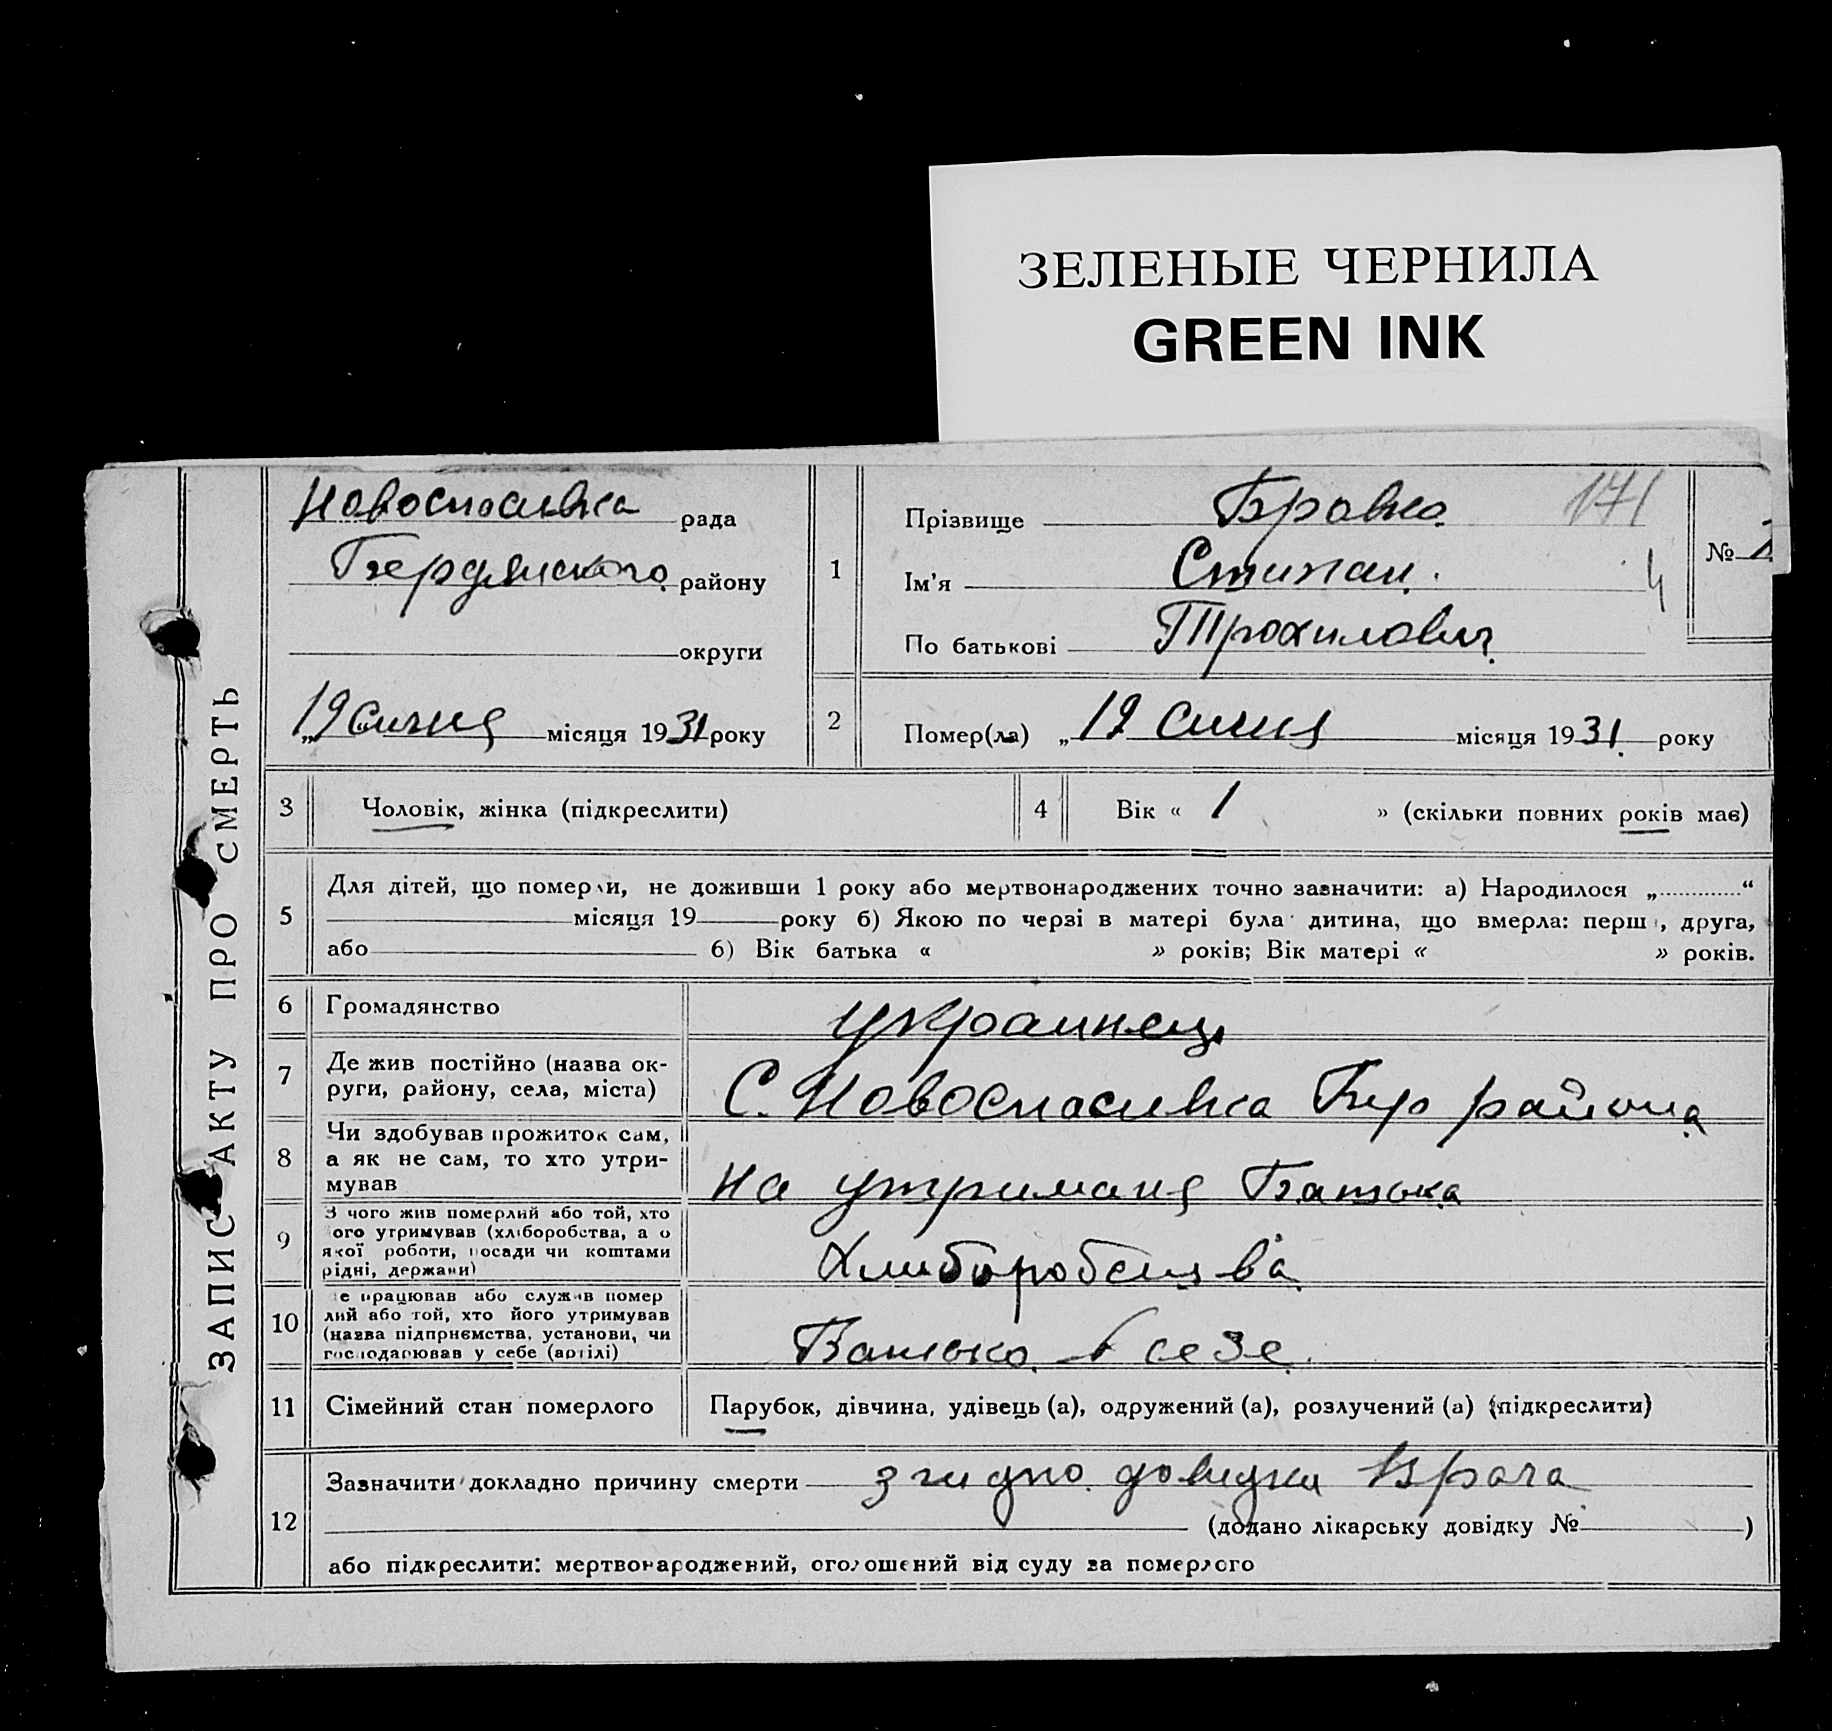 ЗЕЛЕНЫЕ ЧЕРНИЛА
GREEN INK
ЗАПИС АКТУ ПРО СМЕРТЬ
Новоспасивка рада
Бердянского району
округи
„19 сичня місяця 1931 року
1
Прізвище Бровко 171
Ім'я Стипан. 4
По батькові Трохимович
№
2 Помер(ла) „19 сичня місяця 1931. року
3 Чоловік, жінка (підкреслити)
4 Вік « 1 » (скільки повних років має)
5 Для дітей, що померли, не доживши 1 року або мертвонароджених точно зазначити: а) Народилося „ “
місяця 19 року б) Якою по черзі в матері була дитина, що вмерла: перш , друга,
або б) Вік батька « » років; Вік матері « » років.
6 Громадянство украинец
7 Де жив постійно (назва ок-
руги, району, села, міста) С. Новоспасивка Бер района
8 Чи здобував прожиток сам,
а як не сам, то хто утри-
мував на утриманя Батька
9 З чого жив померлий або той, хто
ого утримував (хліборобства, а о
якої роботи, посади чи коштами
рідні, держави)
Хлиборобства
10 е працював або служив помер
лий або той, хто його утримував
(назва підприємства, установи, чи
господарював у себе (артілі)
Батько в себе.
11 Сімейний стан померлого Парубок, дівчина, удівець (а), одружений (а), розлучений (а) (підкреслити)
12 Зазначити докладно причину смерти згидно довидки Врача
(додано лікарську довідку № )
або підкреслити: мертвонароджений, оголошений від суду за померлого